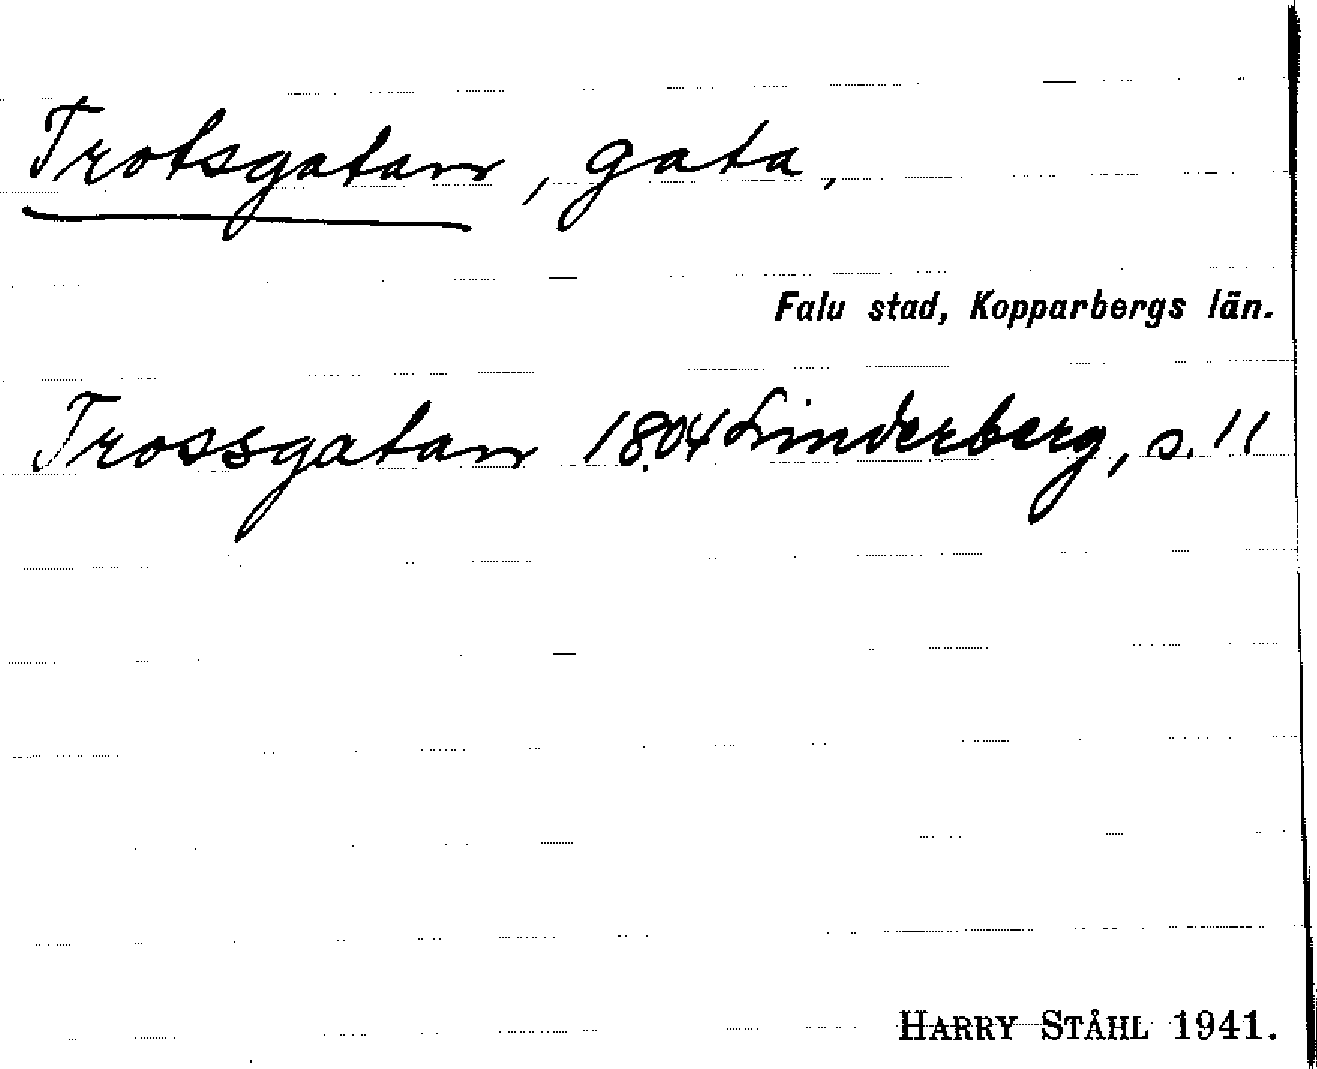 Trotsgatan, gata,
Falu stad, Kopparbergs län.
Trossgatan 1804 Linderberg, s. 11
HARRY STÅHL 1941.